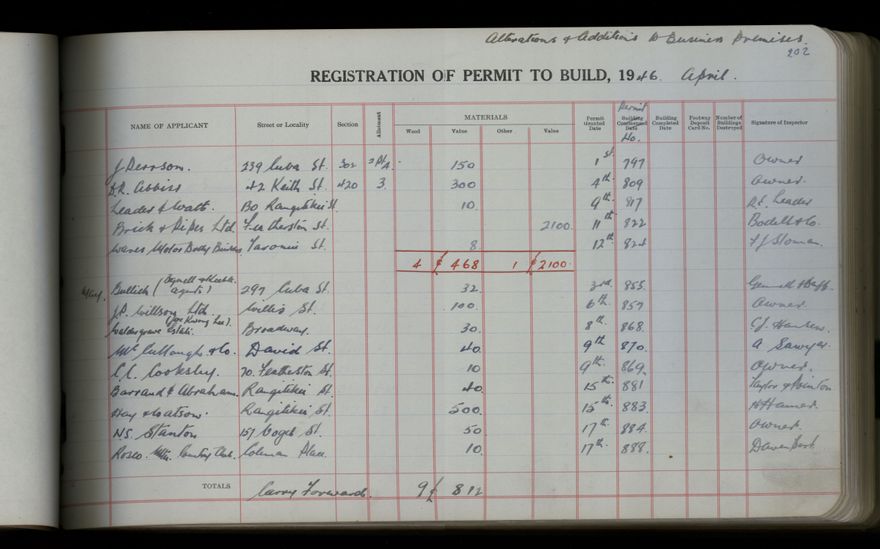 Alterations & Additions to Business Premises.
202
REGISTRATION OF PERMIT TO BUILD, 1946. April.
NAME OF APPLICANT Street or Locality Section Allotment MATERIALS Wood Value Other Value Permit Granted Date Permit No. Building Commenced Date Building Completed Date Footway Deposit Card No. Number of Buildings Destroyed Signature of Inspector
J. Pearson. 239 Cuba St. 302 150 1st 797 Owner
D.R. 42 Keith St. 420 3. 300 4th 809 Owner
Leader & Watt. 80 Rangitikei St. 10. 9th 817 Leader
Brick & Pipes Ltd Featherston St. 2100. 11th 822 Bodell & Co.
Motor Body Builders Taronui St. 8 12th 824 Sloman.
4 £ 468 1 £ 2100
Bullick ( agents) 297 Cuba St. 32. 3rd. 855.
J.D. Willson Ltd Willis St. 100. 6th 857 Owner.
Broadway. 30. 8th 868.
McCullough & Co. David St. 40. 9th 870. A Sawyer
C.L. Cooksley 70. Featherston St. 10 9th. 869. Owner.
Barraud & Abraham. Rangitikei St. 40. 15th 881 Taylor &
Hay & Watson. Rangitikei St. 500. 15th 883
N.S. Stanton 157 Vogel St. 50 17th 884 Owner.
Rosco. Country Club. Coleman Place 10. 17th. 888.
TOTALS Carry Forward. 9 £ 812